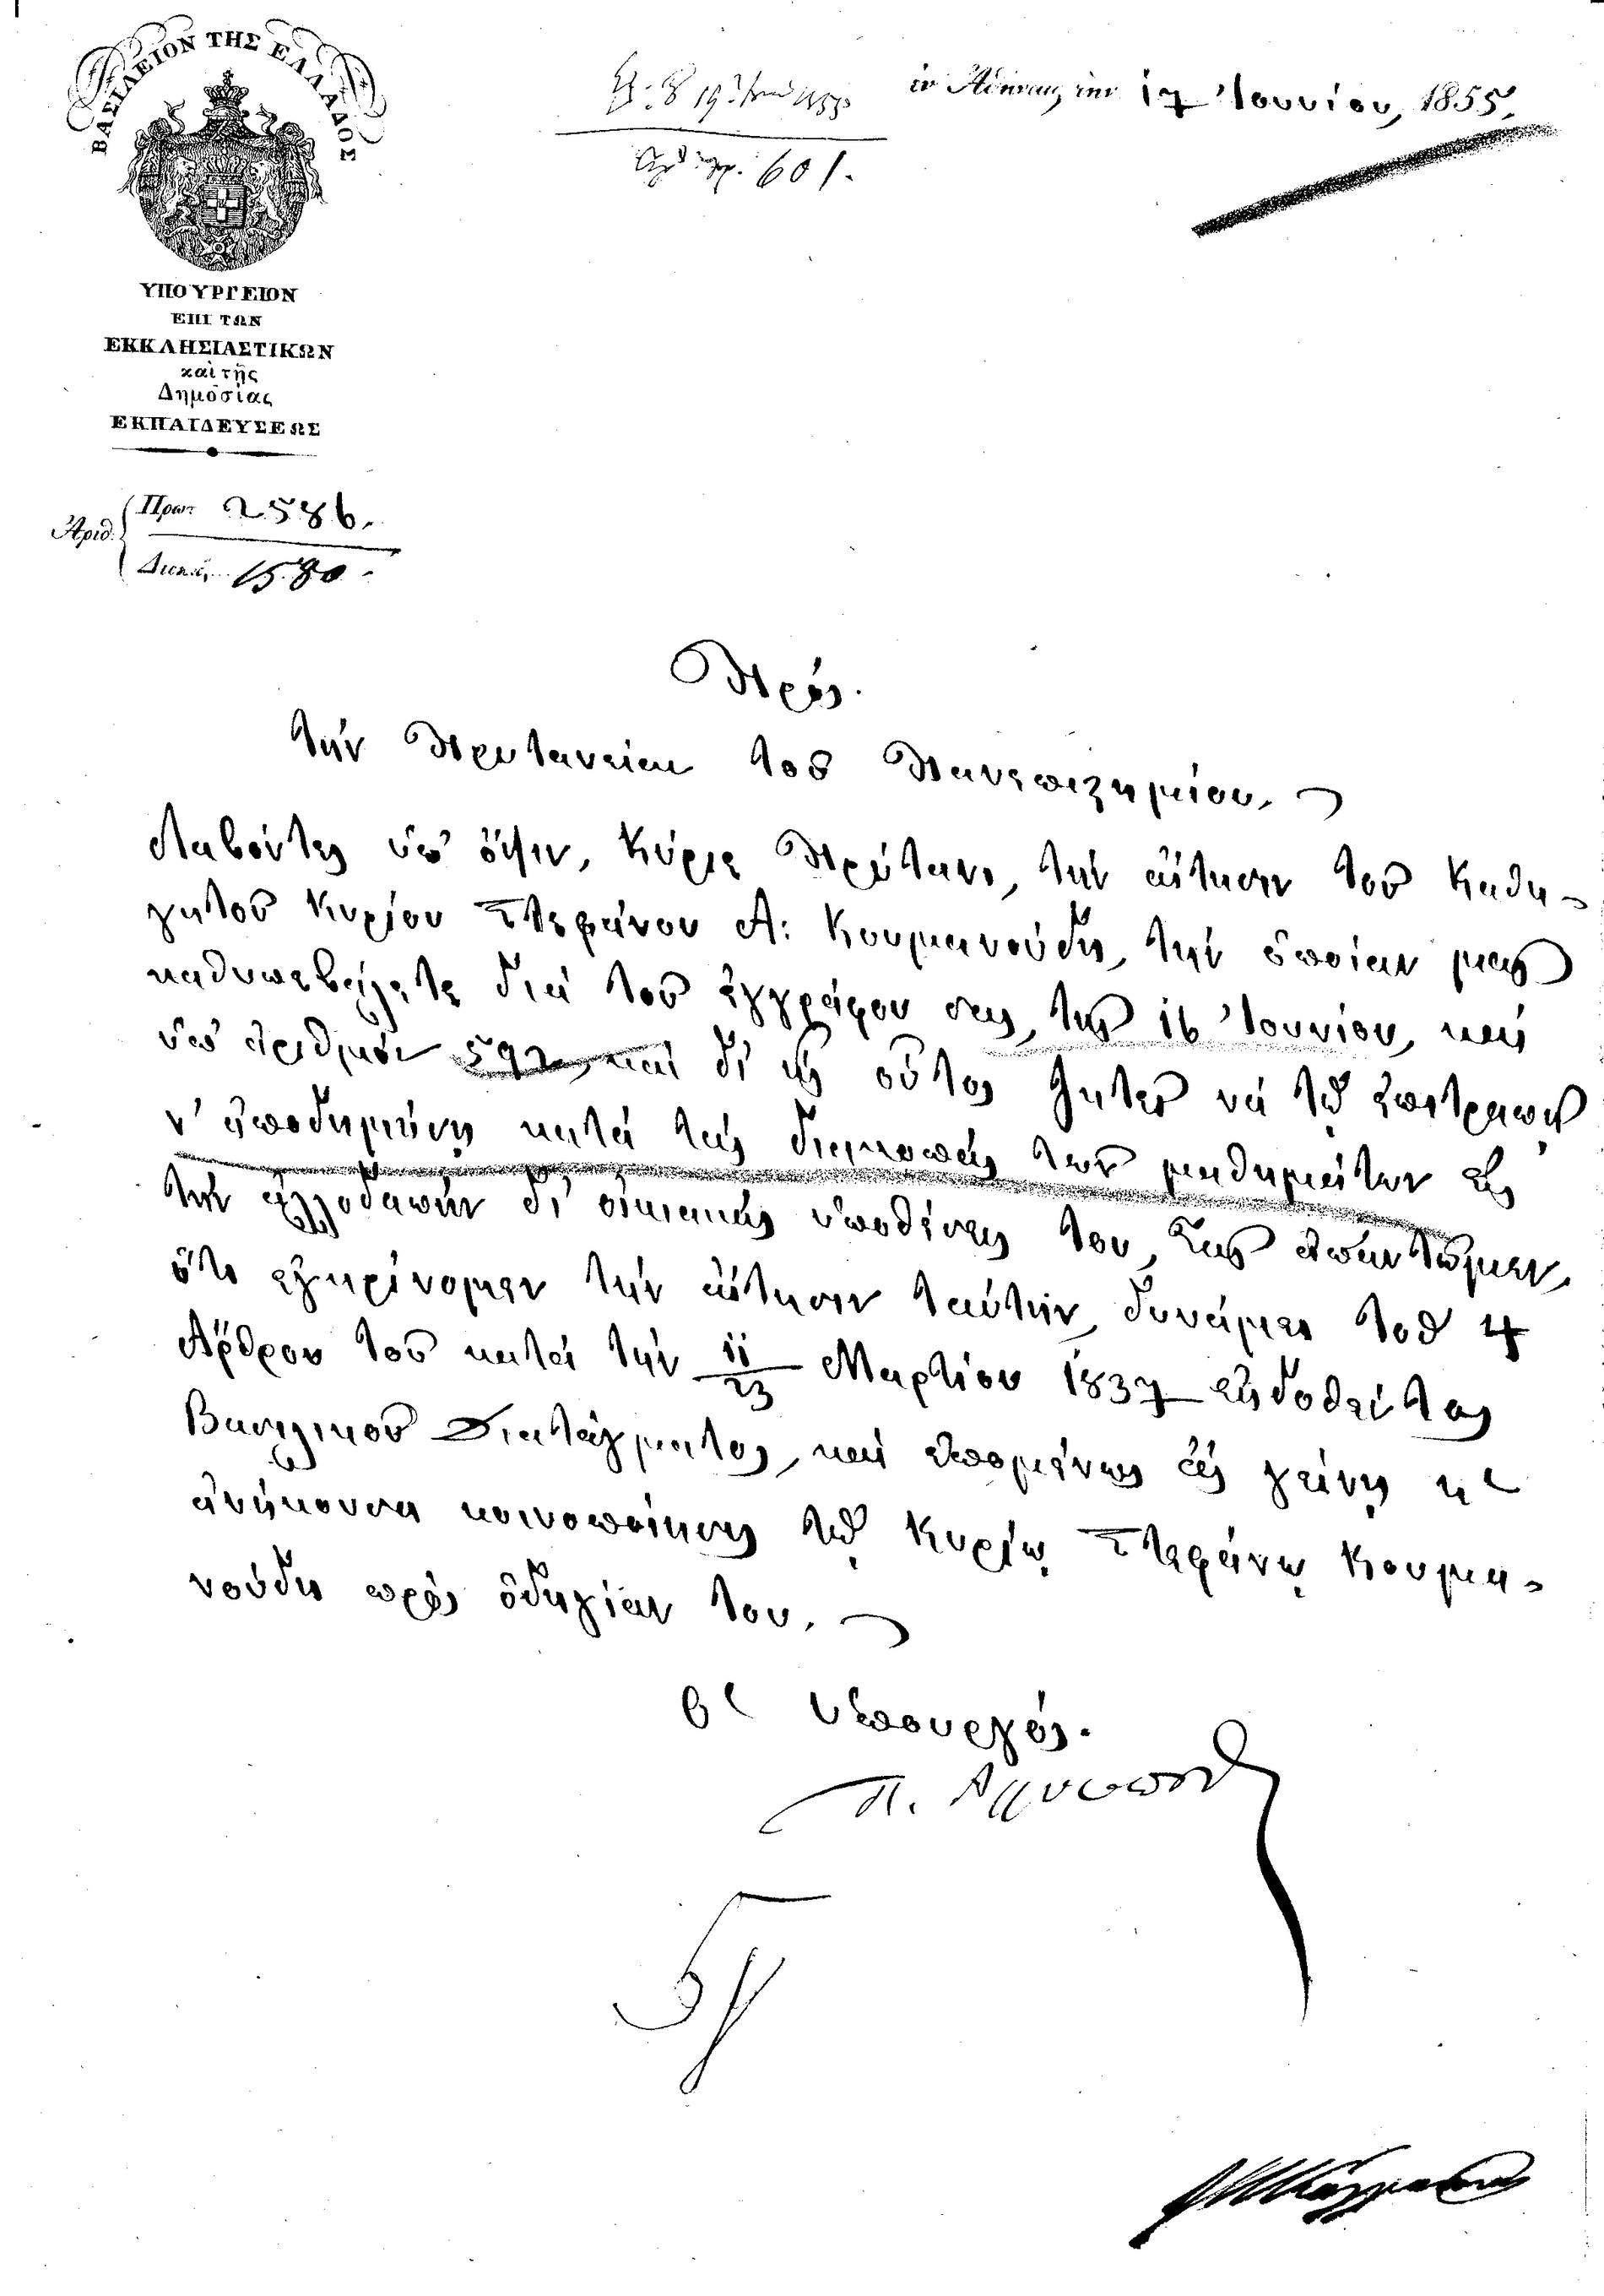 ΒΑΣΙΛΕΙΟΝ ΤΗΣ ΕΛΛΑΔΟΣ
ΥΠΟΥΡΓΕΙΟΝ
ΕΠΙ ΤΩΝ
ΕΚΚΛΗΣΙΑΣΤΙΚΩΝ
καὶ τῆς
Δημοσίας
ΕΚΠΑΙΔΕΥΣΕΩΣ
Ἀριθ.
Πρωτ. 2586.
Διεκπ. 1580.
19 1855
Ἀρ. πρ. 601.
ἐν Ἀθήναις τὴν 17 Ἰουνίου, 1855.
Πρὸς.
τὴν Πρυτανείαν τοῦ Πανεπιστημίου.
Λαβόντες ὑπ' ὄψιν, Κύριε Πρύτανι, τὴν αἴτησιν τοῦ Καθη-
γητοῦ Κυρίου Στεφάνου Α: Κουμανούδη, τὴν ὁποίαν μας
καθυπεβάλετε διὰ τοῦ ἐγγράφου σας, τῆς 16 Ἰουνίου, καὶ
ὑπ' ἀριθμὸν 592, καὶ δι' ἧς οὗτος ζητεῖ νὰ τῷ ἐπιτραπῇ
ν' ἀποδημήσῃ κατὰ τὰς διακοπὰς τῶν μαθημάτων εἰς
τὴν ἀλλοδαπὴν δι' οἰκιακὰς ὑποθέσεις του, Σᾶς ἀπαντῶμεν,
ὅτι ἐγκρίνομεν τὴν αἴτησιν ταύτην, δυνάμει τοῦ 4
Ἄρθρου τοῦ κατὰ τὴν 11/23 Μαρτίου 1837 ἐκδοθέντος
Βασιλικοῦ Διατάγματος, καὶ ἑπομένως ἂς γείνῃ ἡ
ἀνήκουσα κοινοποίησις τῷ Κυρίῳ Στεφάνῳ Κουμα-
νούδη πρὸς ὁδηγίαν του.
Ὁ Ὑπουργός.
Π. Ἀργυρόπουλος